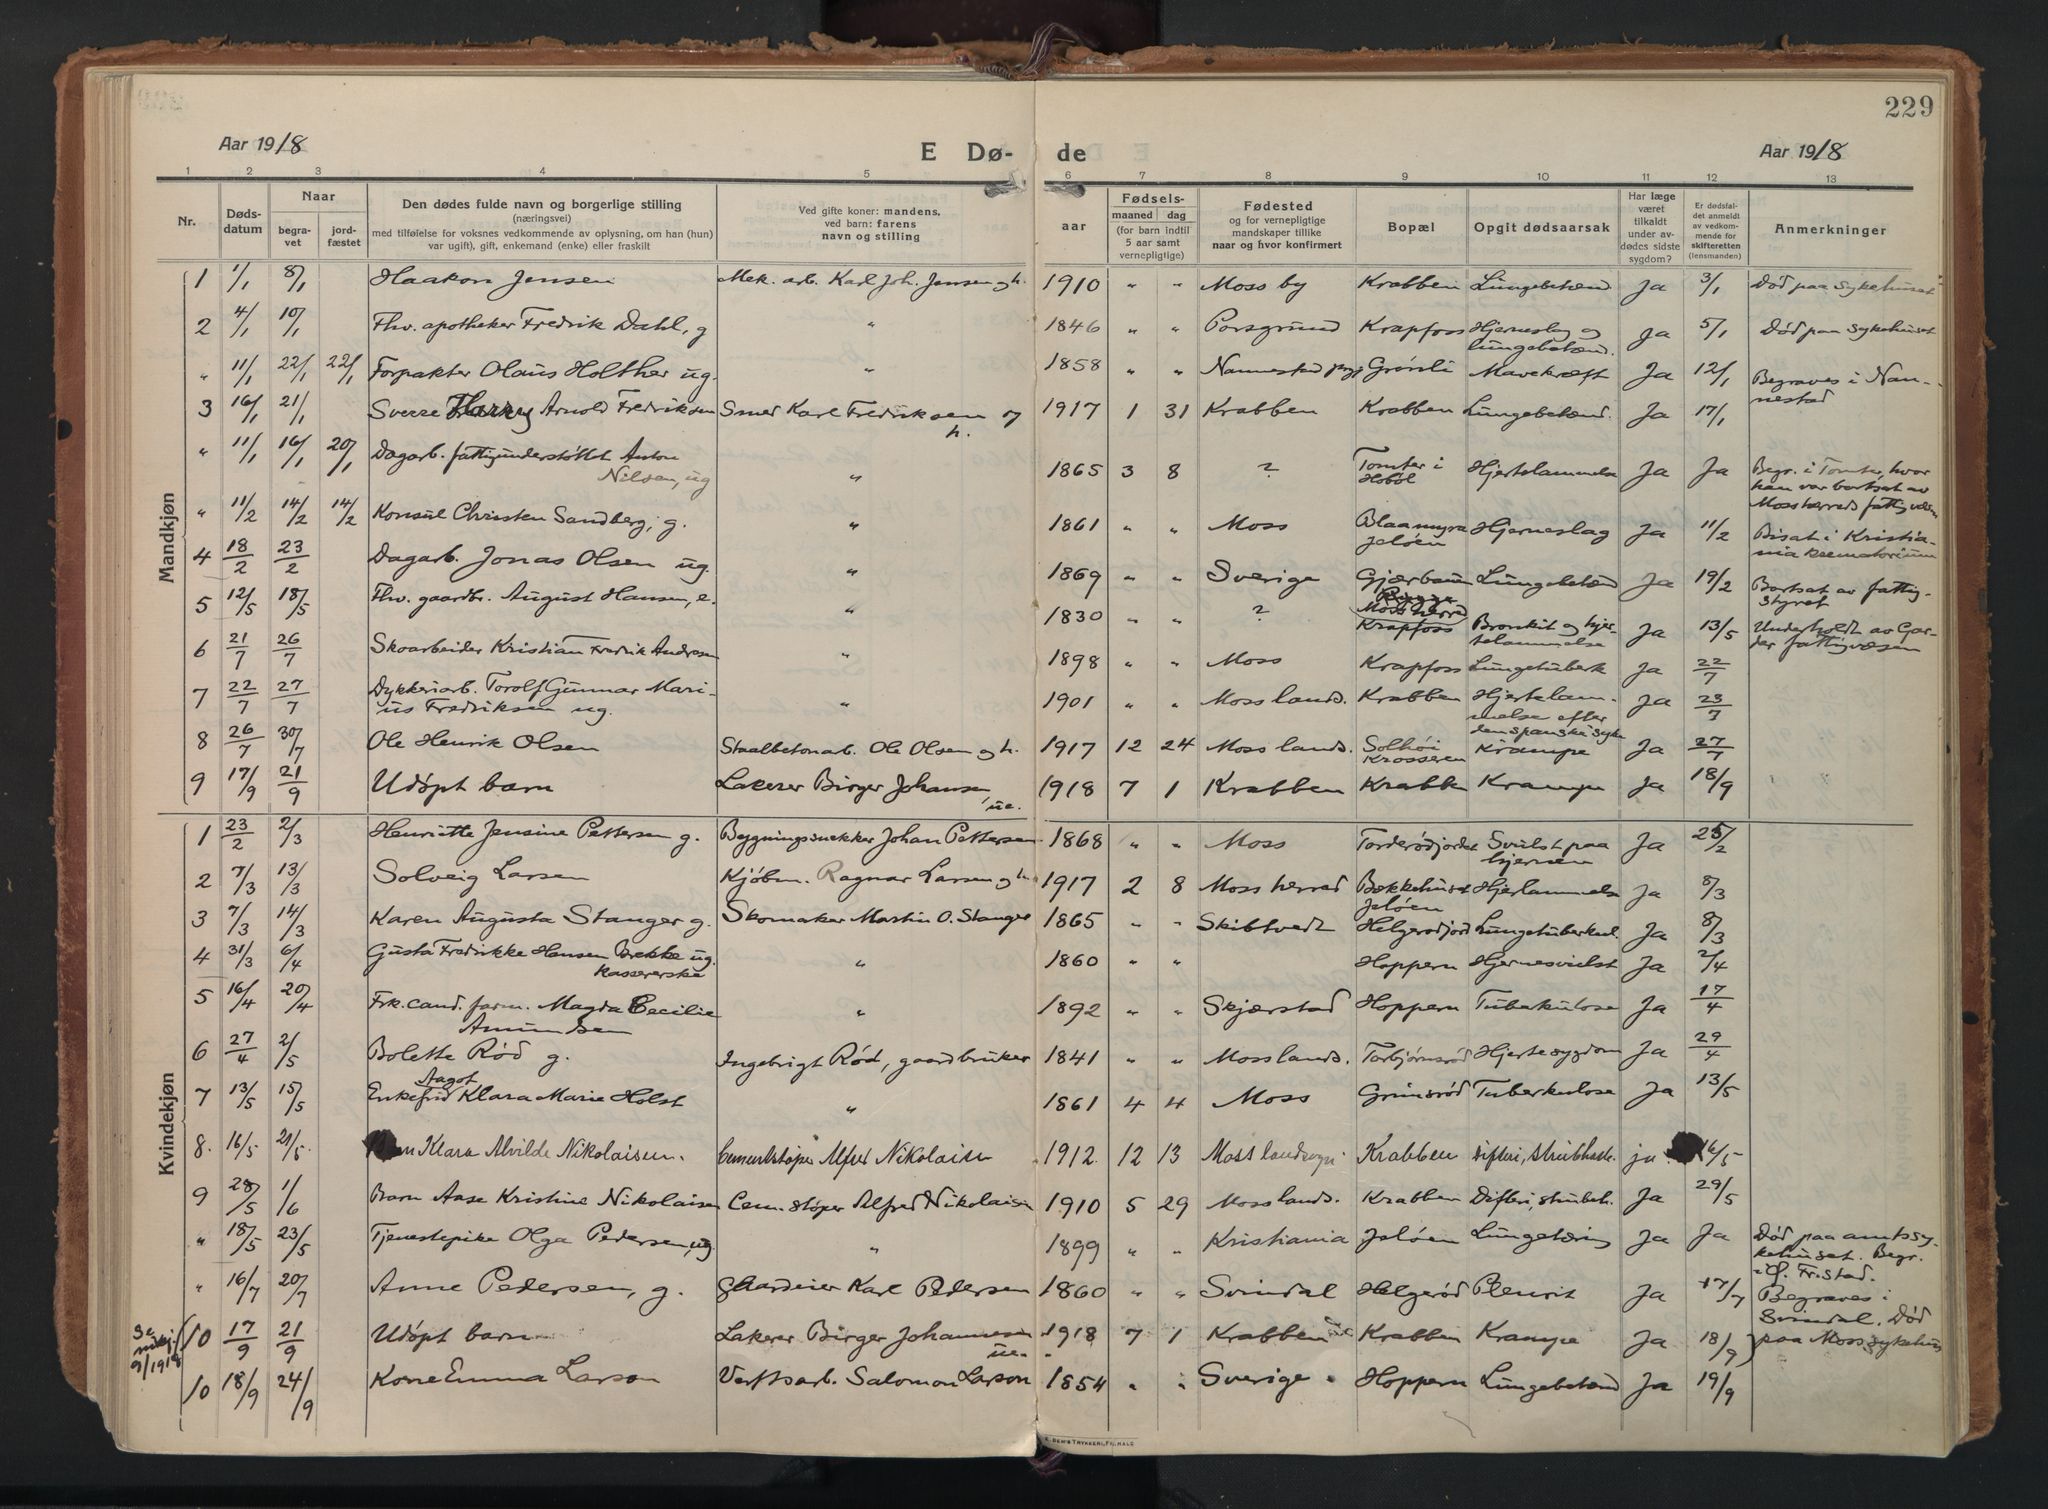 229
Aar 1918
E Dø-
de
Aar 1918
1 2 3 3 4 5 6 7 8 9 10 11 12 13
Nr.
Døds-
datum
Naar
begra-
vet
jord-
fæstet
Den dødes fulde navn og borgerlige stilling
(næringsvei)
med tilføielse for voksnes vedkommende av oplysning, om han (hun)
var ugift), gift, enkemand (enke) eller fraskilt
Ved gifte koner: mandens,
ved barn: farens
navn og stilling
aar
Fødsels-
maaned
dag
(for barn indtil
5 aar samt
vernepligtige)
Fødested
og for vernepligtige
mandskaper tillike
naar og hvor konfirmert
Bopæl
Opgit dødsaarsak
Har læge
været
tilkaldt
under av-
dødes sidste
sygdom?
Er dødsfal-
det anmeldt
av vedkom-
mende for
skifteretten
(lensmanden)
Anmerkninger
Mandkjøn
1 1/1 8/1 Haakon Jensen Mek. arb. Karl Joh. Jensen og h. 1910 " " Moss by Krabben Lungebetænd Ja 3/1 Død paa sykehuset
2 4/1 10/1 Fhv. apotheker Fredrik Dahl, g " 1846 " " Porsgrund Krapfoss Hjerneslag og lungebetænd. Ja 5/1 Død paa sykehuset
" 11/1 22/1 22/1 Forpakter Olaus Holther ug. " 1858 " " Nannestad Grönli Mavekræft Ja 12/1 Begraves i Nan-
nestad
3 16/1 21/1 Sverre Harry Arnold Fredriksen Smed Karl Fredriksen og h. 1917 1 31 Krabben Krabben Lungebetænd. Ja 17/1
" 11/1 16/1 20/1 Dagarb. fattigunderstöttet Anton
Nilsen, ug " 1865 3 8 ? Tomter i Hoböl Hjertelammelse Ja Ja Begr. i Tomter, hvor
han var bortsat av
Moss herreds fattigvæsen
" 11/2 14/2 14/2 Konsul Christen Sandberg, g. " 1861 " " Moss Blaamyra Jelöen Hjerneslag Ja 11/2 Bisat i Kristia-
nia krematorium
4 18/2 23/2 Dagarb. Jonas Olsen ug. " 1869 " " Sverige Lungebetænd Ja 19/2 Bortsat av fattig-
styret
5 12/5 18/5 Fhv. gaardbr. August Hansen, e. " 1830 ? Moss herred Krapfoss Bronkit og hjer-
telammelse Ja 13/5 Underholdt av Gar-
der fattigvæsen
6 21/7 26/7 Skoarbeider Kristian Fredrik Andresen " 1898 " " Moss Krapfoss Lungetuberk Ja 22/7
7 22/7 27/7 Torolf Gunnar Mari-
us Fredriksen ug. " 1901 " " Moss lands. Krabben Hjertelam-
melse efter
den spanske syke Ja 23/7
8 26/7 30/7 Ole Henrik Olsen Staalbetonarb. Ole Olsen og h. 1917 12 24 Moss lands. Solhöi Krosseren Krampe Ja 27/7
9 17/9 21/9 Udöpt barn Lakerer Birger Johansen, ue. 1918 7 1 Krabben Krabben Krampe Ja 18/9
Kvindekjøn
1 23/2 2/3 Henriette Jensine Pettersen g. Bygningssnekker Johan Pettersen 1868 " " Moss Torderödjordet Svulst paa hjernen Ja 25/2
2 7/3 13/3 Solveig Larsen Kjøbm. Ragnar Larsen og h. 1917 2 8 Moss herred Bekkehuset Jelöen Hjertelammelse Ja 8/3
3 7/3 14/3 Karen Augusta Stanger g. Skomaker Martin O. Stanger 1865 " " Skibtvedt Helgerödjord Lungetuberkul. Ja 8/3
4 31/3 6/4 Gusta Fredrikke Hansen Brekke ug.
Kassererske " 1860 " " Hoppern Hjernesvulst Ja 2/4
5 16/4 20/4 Frk. cand. farm. Magda Cecilie
Amundsen " 1892 " " Skjærstad Hoppern Tuberkulose Ja 17/4
6 27/4 2/5 Bolette Röd g. Ingebrigt Röd, gaardbruker 1841 " " Moss lands. Torbjørnsröd Hjertesygdom Ja 29/4
7 13/5 15/5 Enkefru Aagot Klara Marie Holst " 1861 4 4 Moss Grimsröd Tuberkulose Ja 13/5
8. 16/5 21/5. Klara Alvilde Nikolaisen. Cementstøper Alfred Nikolaisen 1912. 12 13 Moss landsogn. Krabben difteri, strubhoste. ja. 16/5
9 28/5 1/6 Barn Aase Kristine Nikolaisen Cem. støper Alfred Nikolaisen 1910 5 29 Moss lands. Krabben Difteri, strubeh. Ja 29/5
" 18/5 23/5 Tjenestepike Olga Pedersen, ug. " 1899 " " Kristiania Jelöen Lungetæring Ja Ja Död paa amtssy-
kehuset. Begr.
i Ø. Fr.stad.
" 16/7 20/7 Anne Pedersen, g. Gardeier Karl Pedersen 1860 " " Svindal Helgeröd Plevrit Ja 17/7 Begraves i
Svindal. Död
paa Moss sykehus
Se
mkj.
9/1918
10 17/9 21/9 Udöpt barn Lakerer Birger Johannesen ue. 1918 7 1 Krabben Krabben Krampe Ja 18/9
10 18/9 24/9 Kone Emma Larson Verftsarb. Salomon Larson 1854 " " Sverige Hoppern Lungebetænd Ja 19/9